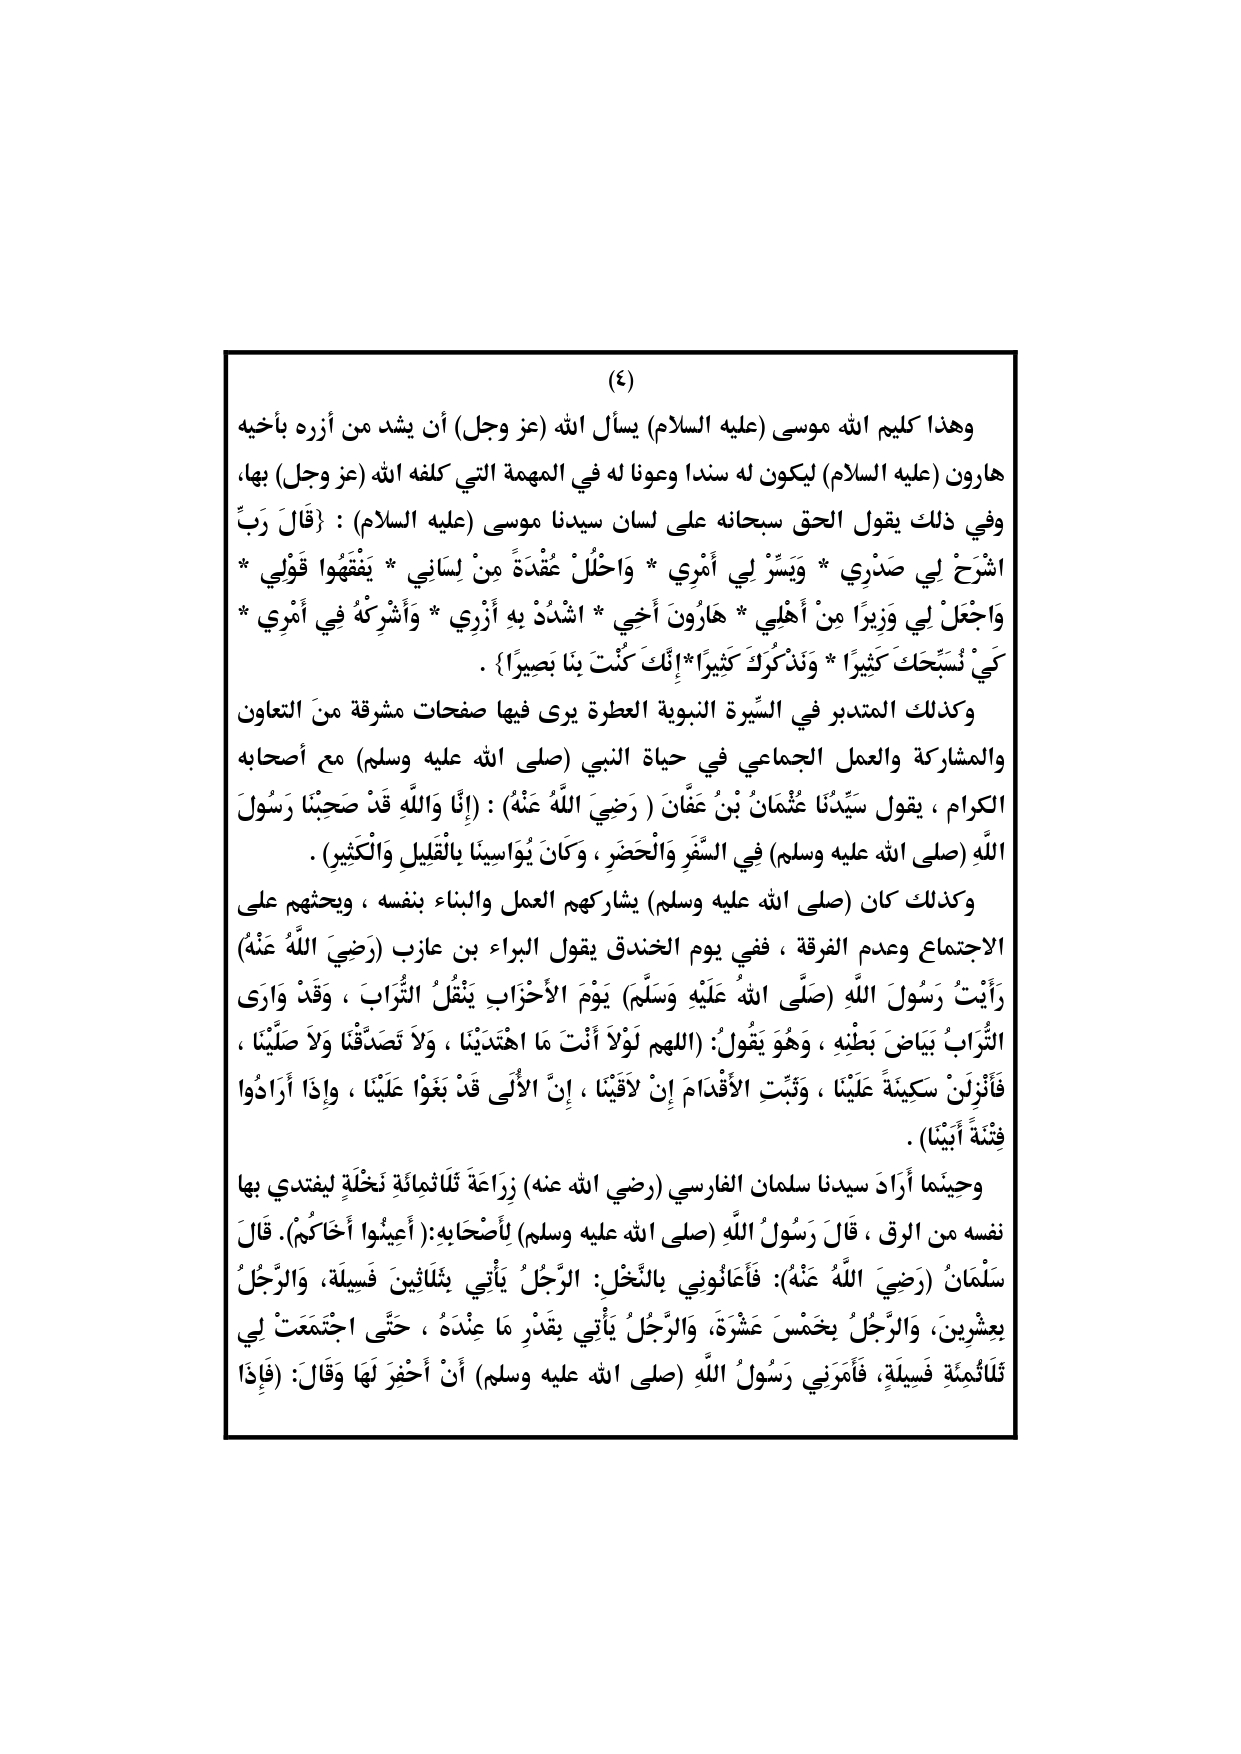 (٤)
وهذا كليم الله موسى (عليه السلام) يسأل الله (عز وجل) أن يشد من أزره بأخيه
هارون (عليه السلام) ليكون له سندا وعونا له في المهمة التي كلفه الله (عز وجل) بها،
وفي ذلك يقول الحق سبحانه على لسان سيدنا موسى (عليه السلام) : {قَالَ رَبِّ
اشْرَحْ لِي صَدْرِي * وَيَسِّرْ لِي أَمْرِي * وَاحْلُلْ عُقْدَةً مِنْ لِسَانِي * يَفْقَهُوا قَوْلِي *
وَاجْعَلْ لِي وَزِيرًا مِنْ أَهْلِي * هَارُونَ أَخِي * اشْدُدْ بِهِ أَزْرِي * وَأَشْرِكْهُ فِي أَمْرِي *
كَيْ نُسَبِّحَكَ كَثِيرًا * وَنَذْكُرَكَ كَثِيرًا*إِنَّكَ كُنْتَ بِنَا بَصِيرًا} .
وكذلك المتدبر في السِّيرة النبوية العطرة يرى فيها صفحات مشرقة منَ التعاون
والمشاركة والعمل الجماعي في حياة النبي (صلى الله عليه وسلم) مع أصحابه
الكرام ، يقول سَيِّدُنَا عُثْمَانُ بْنُ عَفَّانَ ( رَضِيَ اللَّهُ عَنْهُ) : (إِنَّا وَاللَّهِ قَدْ صَحِبْنَا رَسُولَ
اللَّهِ (صلى الله عليه وسلم) فِي السَّفَرِ وَالْحَضَرِ ، وَكَانَ يُوَاسِينَا بِالْقَلِيلِ وَالْكَثِيرِ) .
وكذلك كان (صلى الله عليه وسلم) يشاركهم العمل والبناء بنفسه ، ويحثهم على
الاجتماع وعدم الفرقة ، ففي يوم الخندق يقول البراء بن عازب (رَضِيَ اللَّهُ عَنْهُ)
رَأَيْتُ رَسُولَ اللَّهِ (صَلَّى اللهُ عَلَيْهِ وَسَلَّمَ) يَوْمَ الأَحْزَابِ يَنْقُلُ التُّرَابَ ، وَقَدْ وَارَى
التُّرَابُ بَيَاضَ بَطْنِهِ ، وَهُوَ يَقُولُ: (اللهم لَوْلاَ أَنْتَ مَا اهْتَدَيْنَا ، وَلاَ تَصَدَّقْنَا وَلاَ صَلَّيْنَا ،
فَأَنْزِلَنْ سَكِينَةً عَلَيْنَا ، وَثَبِّتِ الأَقْدَامَ إِنْ لاَقَيْنَا ، إِنَّ الأُلَى قَدْ بَغَوْا عَلَيْنَا ، وإِذَا أَرَادُوا
فِتْنَةً أَبَيْنَا) .
وحِينَما أَرَادَ سيدنا سلمان الفارسي (رضي الله عنه) زِرَاعَةَ ثَلَاثمِائَةِ نَخْلَةٍ ليفتدي بها
نفسه من الرق ، قَالَ رَسُولُ اللَّهِ (صلى الله عليه وسلم) لِأَصْحَابِهِ:( أَعِينُوا أَخَاكُمْ). قَالَ
سَلْمَانُ (رَضِيَ اللَّهُ عَنْهُ): فَأَعَانُونِي بِالنَّخْلِ: الرَّجُلُ يَأْتِي بِثَلَاثِينَ فَسِيلَة، وَالرَّجُلُ
بِعِشْرِينَ، وَالرَّجُلُ بِخَمْسَ عَشْرَةَ، وَالرَّجُلُ يَأْتِي بِقَدْرِ مَا عِنْدَهُ ، حَتَّى اجْتَمَعَتْ لِي
ثَلَاثُمِئَةِ فَسِيلَةٍ، فَأَمَرَنِي رَسُولُ اللَّهِ (صلى الله عليه وسلم) أَنْ أَحْفِرَ لَهَا وَقَالَ: (فَإِذَا